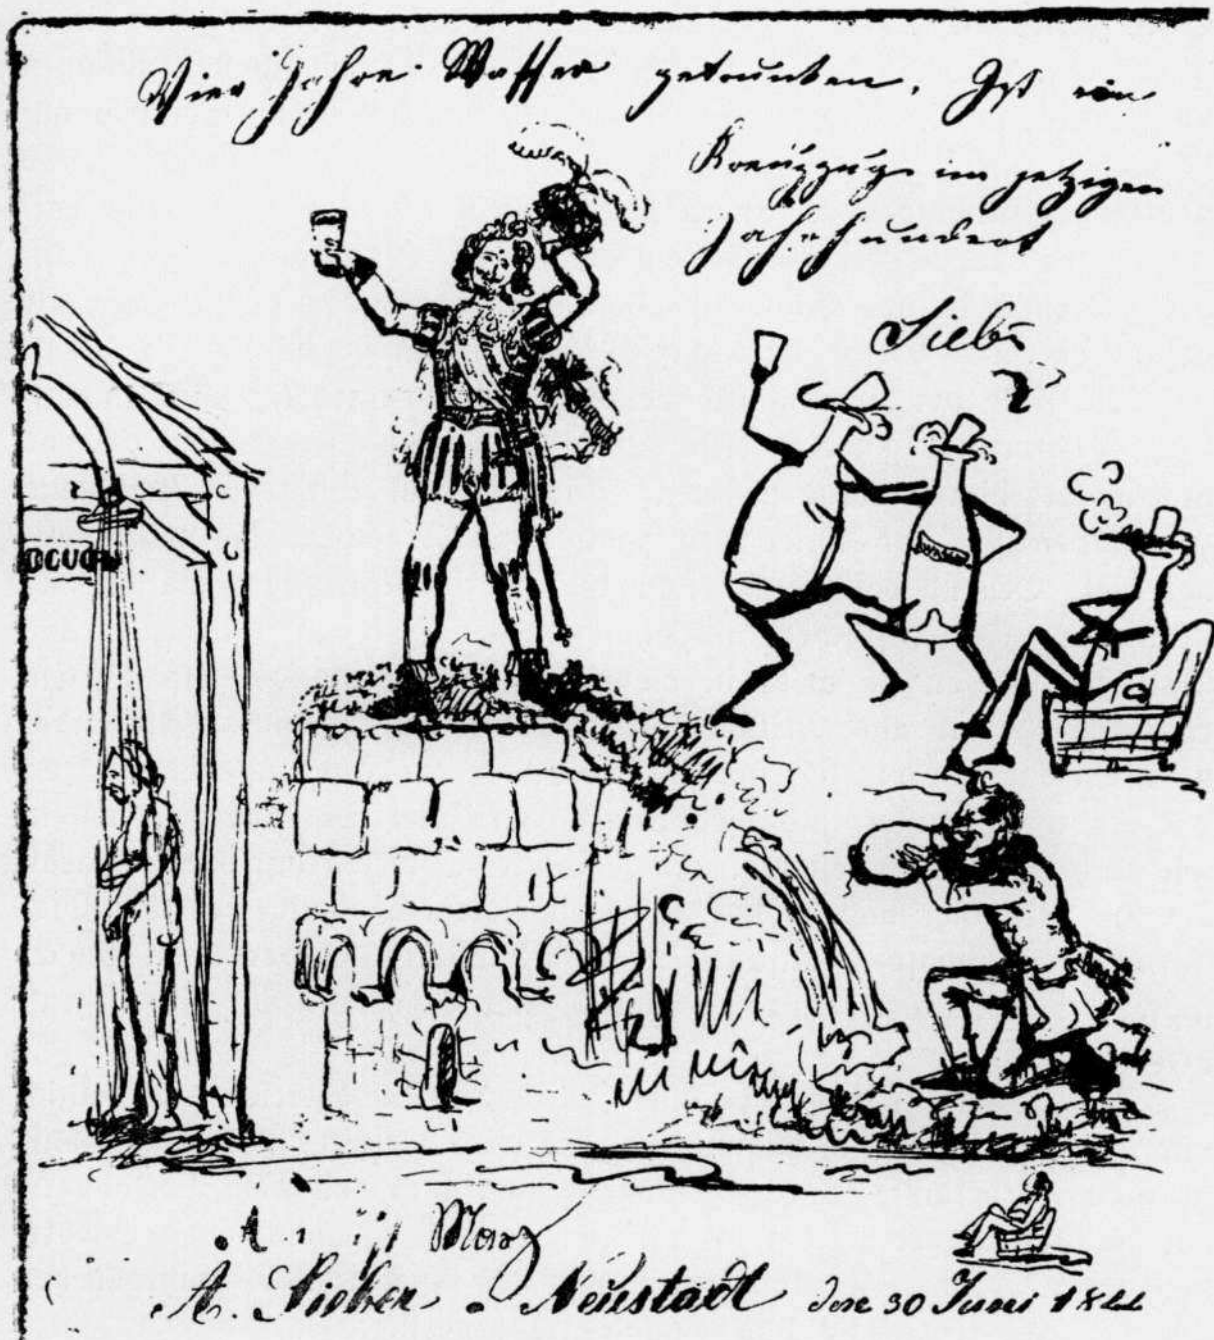 Vier Jahre Wasser getrunken, Ist ein
Kreuzzug im jetzigen
Jahrhundert
Sieb
A. Sieber Neustadt den 30 Juni 1844